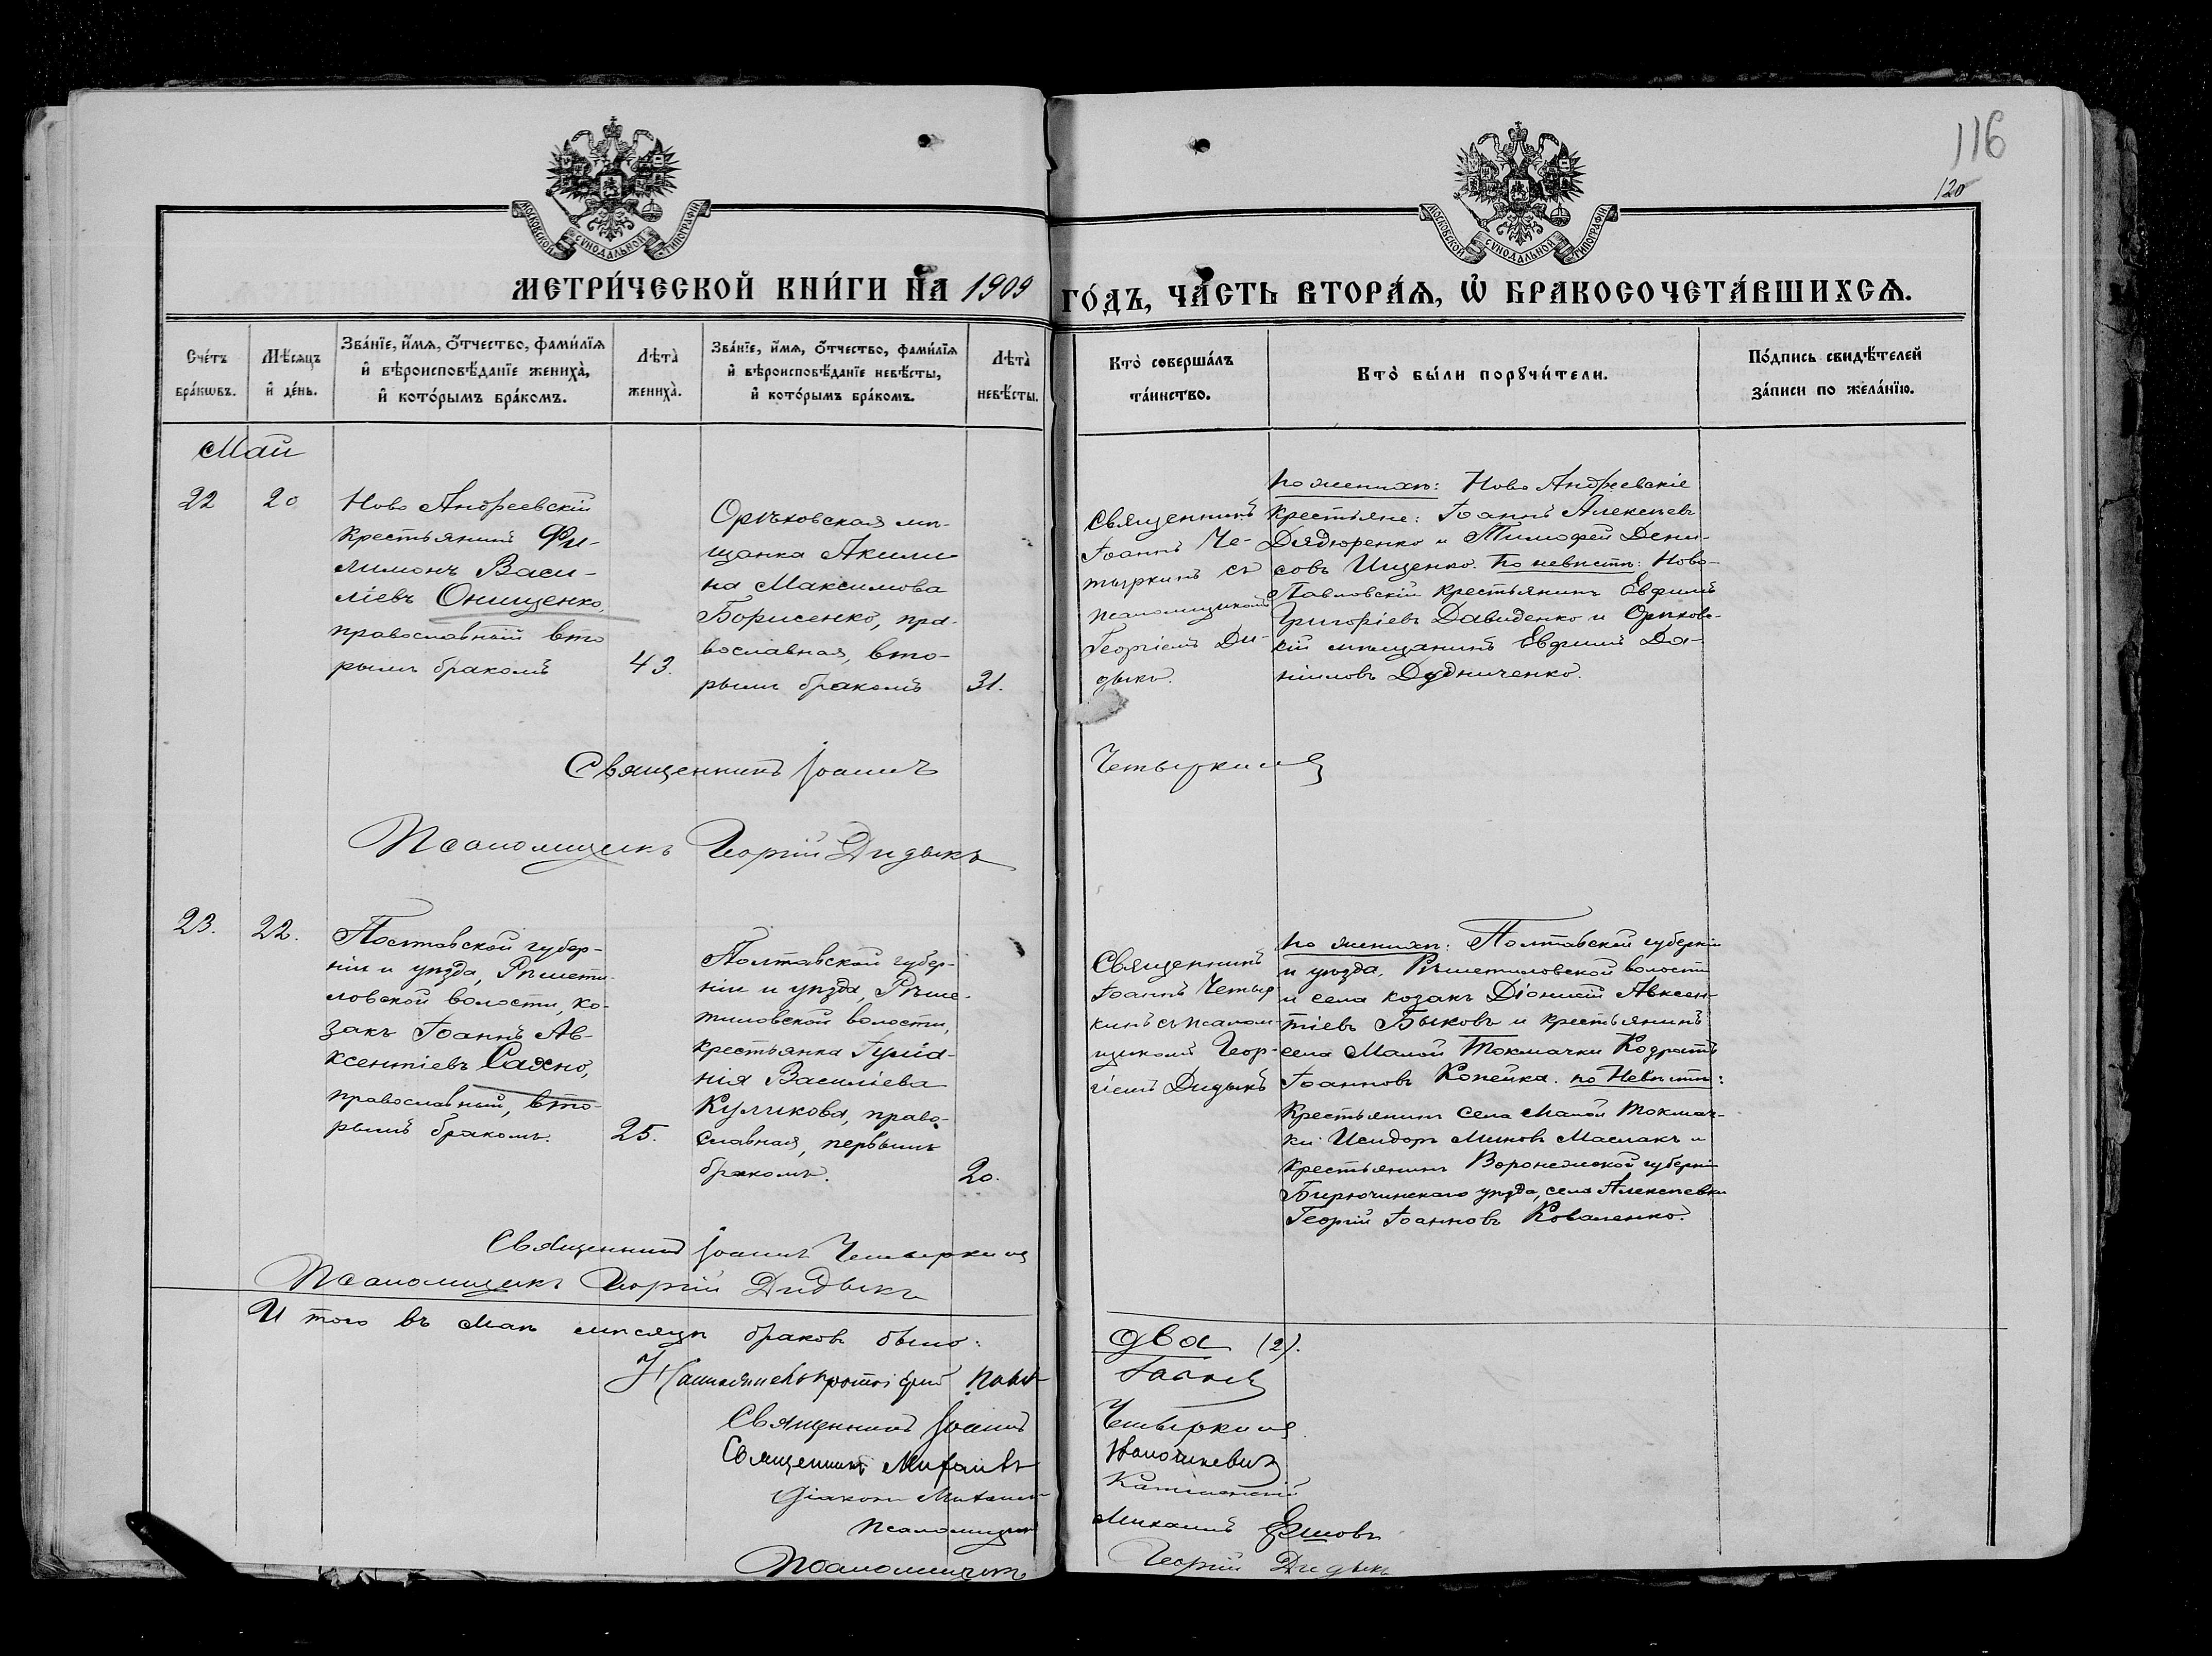 116
120
МОСКОВСКОЙ СѴНОДАЛЬНОЙ ТИПОГРАФІИ
МОСКОВСКОЙ СѴНОДАЛЬНОЙ ТИПОГРАФІИ
МЕТРИ́ЧЕСКОЙ КНИ́ГИ НА 1909 ГО́ДЪ, ЧА́СТЬ ВТОРА́Ѧ, Ѡ҆ БРАКОСОЧЕТА́ВШИХСѦ.
Сче́тъ бра́кѡвъ.
Мѣ́сѧцъ и҆ де́нь.
Зва́нїе, и҆́мѧ, ѻ҆́тчество, фами́лїѧ
и҆ вѣроисповѣ́данїе жениха̀,
и҆ кото́рымъ бра́комъ.
Лѣта̀ жениха̀.
Зва́нїе, и҆́мѧ, ѻ҆́тчество, фами́лїѧ
и҆ вѣроисповѣ́данїе невѣ́сты,
и҆ кото́рымъ бра́комъ.
Лѣта̀ невѣ́сты.
Кто̀ соверша́лъ
та́инство.
Кто̀ бы́ли порꙋчи́тели.
По́дпись свидѣ́телей
за́писи по жела́нїю.
Май
22
20
Ново Андреевскій
крестьянинъ Фи-
лимонъ Васи-
ліевъ Онищенко,
православный вто
рымъ бракомъ
43.
Орѣховская мѣ-
щанка Акили-
на Максимова
Борисенко, пра-
вославная, вто-
рымъ бракомъ
31.
Священникъ
Іоаннъ Че-
тыркинъ съ
псаломщикомъ
Георгіемъ Ди-
дыкъ.
По женихѣ: Ново Андреевскіе
крестьяне: Іоаннъ Алексѣевъ
Дядюренко и Тимофей Дени-
совъ Ищенко. По невѣстѣ: Ново-
Павловскій крестьянинъ Евфимъ
Григоріевъ Давиденко и Орѣховс-
кій мѣщанинъ Евфимъ Да-
ніиловъ Дудниченко.
Священникъ Іоаннъ Четыркинъ
Псаломщикъ Георгій Дидыкъ
23.
22.
Полтавской губер-
ніи и уѣзда, Рѣшети-
ловской волости, ко-
закъ Іоаннъ Ав-
ксентіевъ Сахно,
православный, вто-
рымъ бракомъ.
25.
Полтавской губер-
ніи и уѣзда, Рѣше-
тиловской волости,
крестьянка Іуліа-
нія Василіева
Куликова, право-
славная, первымъ
бракомъ.
20.
Священникъ
Іоаннъ Четыр-
кинъ съ псалом-
щикомъ Геор-
гіемъ Дидыкъ
по женихѣ: Полтавской губерніи
и уѣзда, Рѣшетиловской волости
и села козакъ Діонисій Авксен-
тіевъ Быковъ и крестьянинъ
села Малой Токмачки Кодратъ
Іоанновъ Копейка. по Невѣстѣ:
Крестьянинъ села Малой Токмач-
ки Исидоръ Миновъ Маслакъ и
крестьянинъ Воронежской губерніи
Бирючинскаго уѣзда, села Алексѣевки
Георгій Іоанновъ Коваленко.
Священникъ Іоаннъ Четыркинъ
Псаломщикъ Георгій Дидыкъ
И того въ Маѣ мѣсяцѣ браков было: два (2).
протоіерей
Священникъ Іоаннъ Четыркинъ
Священникъ Михаилъ
Діаконъ
Псаломщикъ Михаилъ Ершовъ
Псаломщикъ Георгій Дидыкъ